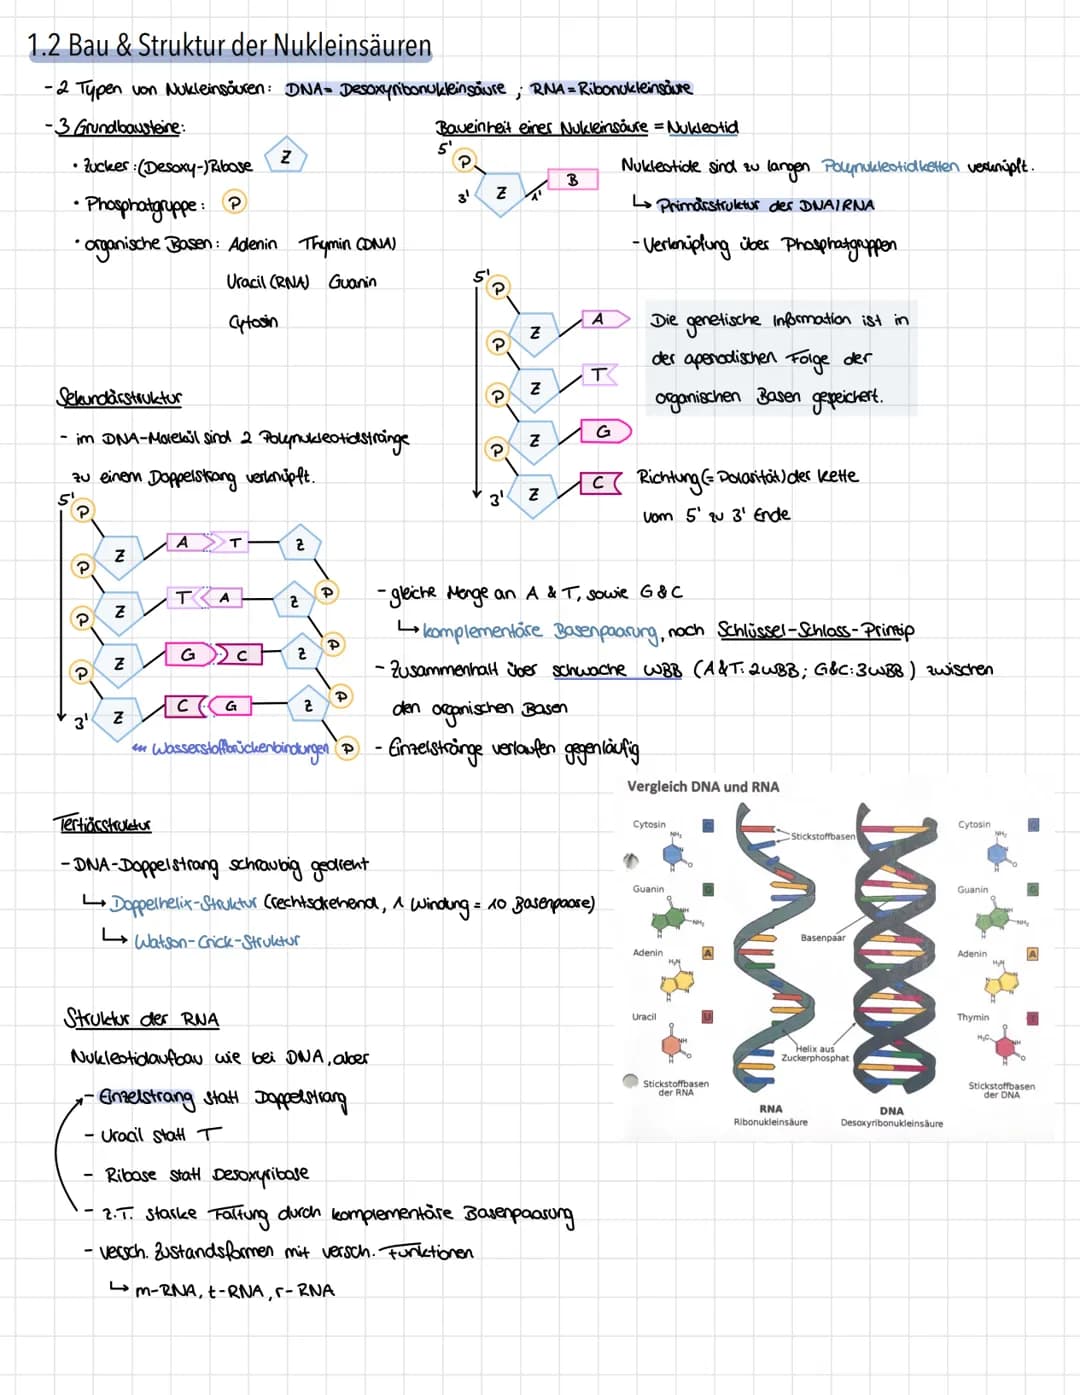 1.2 Bau & Struktur der Nukleinsäuren
- 2 Typen von Nukleinsäuren: DNA = Desoxyribonukleinsäure ; RNA = Ribonukleinsäure
- 3 Grundbausteine:
• Zucker: (Desoxy-)Ribose Z
• Phosphatgruppe: P
• organische Basen: Adenin Thymin (DNA)
Uracil (RNA) Guanin
Cytosin
Baueinheit einer Nukleinsäure = Nukleotid
5'
P
3' Z 1' B
Nukleotide sind zu langen Polynukleotidketten verknüpft.
↳ Primärstruktur der DNA/RNA
- Verknüpfung über Phosphatgruppen
5'
P
Z A
P
Z T
P
Z G
P
3' Z C
Die genetische Information ist in
der aperiodischen Folge der
organischen Basen gepeichert.
Richtung (= Polarität) der Kette
vom 5' zu 3' Ende
Sekundärstruktur
- im DNA-Molekül sind 2 Polynukleotidstränge
zu einem Doppelstrang verknüpft.
5'
P
Z A T Z
P P
Z T A Z
P P
Z G C Z
P P
3' Z C G Z
Wasserstoffbrückenbindungen P
- gleiche Menge an A & T, sowie G & C
↳ komplementäre Basenpaarung, nach Schlüssel-Schloss-Prinzip
- Zusammenhalt über schwache WBB (A&T: 2WBB; G&C: 3WBB) zwischen
den organischen Basen
- Einzelstränge verlaufen gegenläufig
Tertiärstruktur
- DNA-Doppelstrang schraubig gedreht
↳ Doppelhelix-Struktur (rechtsdrehend, 1 Windung = 10 Basenpaare)
↳ Watson-Crick-Struktur
Struktur der RNA
Nukleotidaufbau wie bei DNA, aber
- Einzelstrang statt Doppelstrang
- Uracil statt T
- Ribose statt Desoxyribose
- z.T. starke Faltung durch komplementäre Basenpaarung
- versch. Zustandsformen mit versch. Funktionen
↳ m-RNA, t-RNA, r-RNA
Vergleich DNA und RNA
Cytosin C
NH₂
Guanin G
NH
NH₂
Adenin A
H₂N
Uracil U
NH
Stickstoffbasen
der RNA
Stickstoffbasen
Basenpaar
Helix aus
Zuckerphosphat
RNA
Ribonukleinsäure
DNA
Desoxyribonukleinsäure
Cytosin C
NH₂
Guanin G
NH
NH₂
Adenin A
H₂N
Thymin T
H₃C
NH
Stickstoffbasen
der DNA